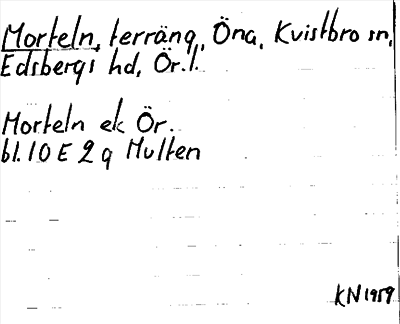 Morteln, terräng, Öna, Kvistbro sn,
Edsbergs hd, Ör.l.
Morteln ek Ör.
bl. 10 E 2 g Multen
KN 1959